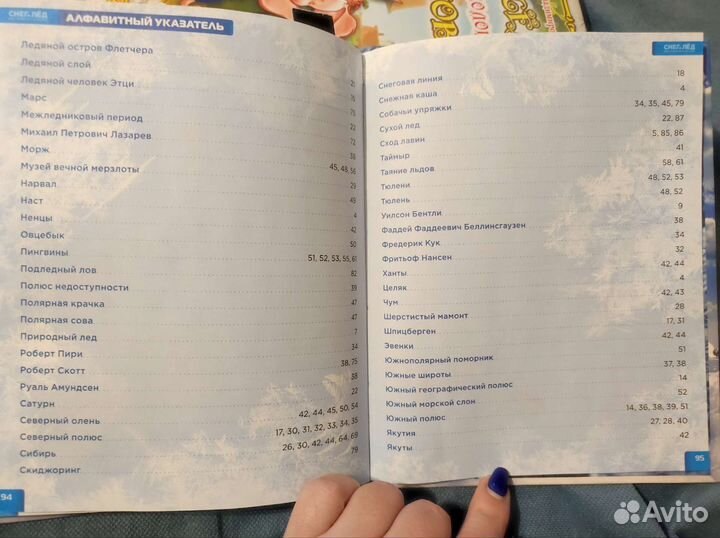 СНЕГ. ЛЁД АЛФАВИТНЫЙ УКАЗАТЕЛЬ
Ледяной остров Флетчера
Ледяной слой 21
Ледяной человек Этци 76
Марс 22
Межледниковый период 72
Михаил Петрович Лазарев 38
Морж 45, 48, 56
Музей вечной мерзлоты 29
Нарвал 49
Наст 4
Ненцы 42
Овцебык 50
Пингвины 51, 52, 53, 55, 61
Подледный лов 82
Полюс недоступности 39
Полярная крачка 47
Полярная сова 47
Природный лед 7
Роберт Пири 34
Роберт Скотт 38, 75
Руаль Амундсен 38
Сатурн 22
Северный олень 42, 44, 45, 50, 54
Северный полюс 17, 30, 31, 32, 33, 34, 35
Сибирь 26, 30, 42, 44, 64, 69
Скиджоринг 79
94
СНЕГ. ЛЁД
Снеговая линия 18
Снежная каша 4
Собачьи упряжки 34, 35, 45, 79
Сухой лед 22, 87
Сход лавин 5, 85, 86
Таймыр 41
Таяние льдов 58, 61
Тюлени 48, 52, 53
Тюлень 48, 52
Уилсон Бентли 9
Фаддей Фаддеевич Беллинсгаузен 38
Фредерик Кук 34
Фритьоф Нансен 32
Ханты 42, 44
Целяк 4
Чум 42, 43
Шерстистый мамонт 28
Шпицберген 17, 31
Эвенки 42, 44
Южнополярный поморник 51
Южные широты 37, 38
Южный географический полюс 14
Южный морской слон 52
Южный полюс 14, 36, 38, 39, 51
Якутия 27, 28, 40
Якуты 42
95
Avito